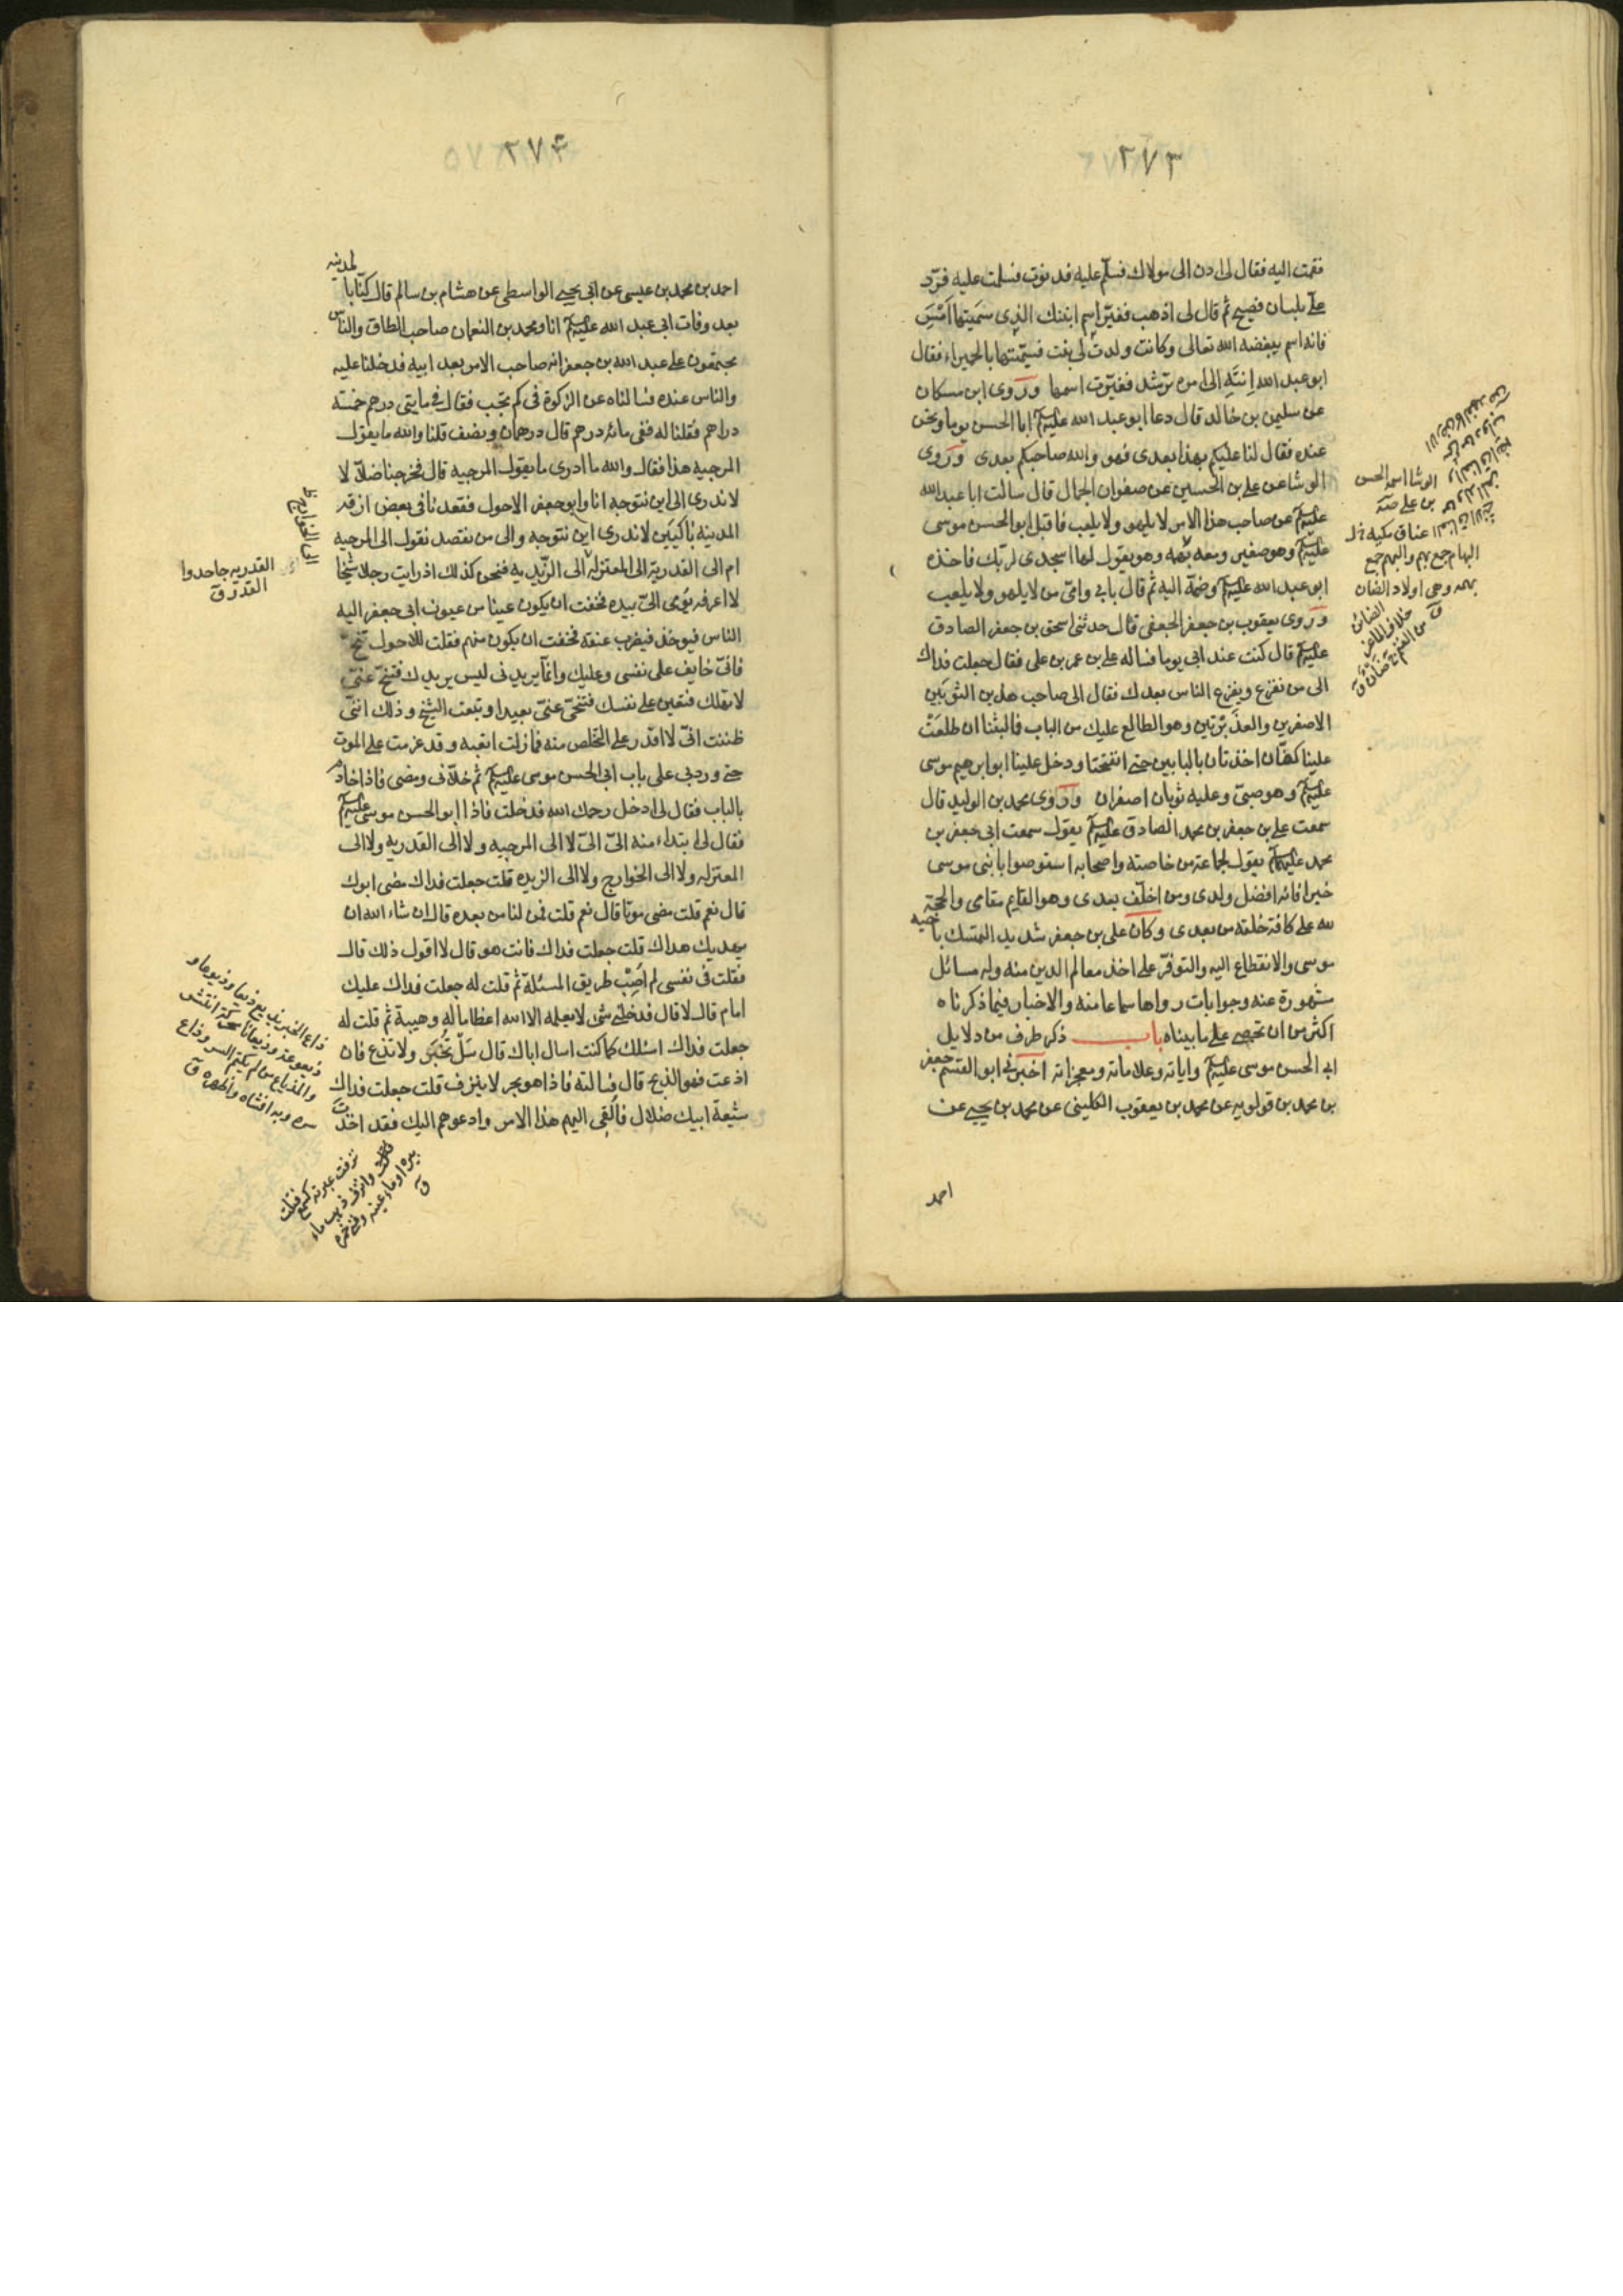 ٢٧٣
فقمت اليه فقال لى ادن الى مولاك فسلم عليه فدنوت فسلمت عليه فردّ
علىّ بلسان فصيح ثم قال لى اذهب فغيّر اسم ابنتك الذى سميتها امسِ
فانه اسم يبغضه الله تعالى وكانت ولدت لى بنت فسمّيتها بالحميراء فقال
ابو عبد الله اِنتَهِ الى امره ترشد فغيّرت اسمها وروى ابن مسكان
عن سليمن بن خالد قال دعا ابو عبد الله عليه السلم ابا الحسن يوما ونحن
عنده فقال لنا عليكم بهذا بعدى فهو والله صاحبكم بعدى وروى
الوشا عن على بن الحسين عن صفوان الجمال قال سالت ابا عبد الله
عليه السلم عن صاحب هذا الامر لا يلهو ولا يلعب فاقبل ابو الحسن موسى
عليه السلم وهو صغير ومعه بهمه وهو يقول لها اسجدى لربك فاخذه
ابو عبد الله عليه السلم وضمّه اليه ثم قال بابى وامّى من لا يلهو ولا يلعب
وروى يعقوب بن جعفر الجعفى قال حدثنى اسحق بن جعفر الصادق
عليه السلم قال كنت عند ابى يوما فساله على بن عمر بن على فقال جعلت فداك
الى من نفزع ويفزع الناس بعدك فقال الى صاحب هذين الثوبَين
الاصفرين والغديرتين وهو الطالع عليك من الباب فما لبثنا ان طلعَت
علينا كفّان اخذتان بالبابين حتى انفتحتا ودخل علينا ابو ابرهيم موسى
عليه السلم وهو صبىّ وعليه ثوبان اصفران وروى محمد بن الوليد قال
سمعت على بن جعفر بن محمد الصادق عليه السلم يقول سمعت ابى جعفر بن
محمد عليهما السلم يقول لجماعة من خاصته واصحابه استوصوا بابنى موسى
خيرا فانه افضل ولدى ومن اخلّف بعدى وهو القايم مقامى والحجة
لله على كافة خلقه من بعدى وكان على بن جعفر شديد التمسك باخيه
موسى والانقطاع اليه والتوفّر على اخذ معالم الدين منه وله مسائل
مشهورة عنه وجوابات رواها سماعا منه والاخبار فيما ذكرناه
اكثر من ان تحصى على ما بيناه باب ذكر طرف من دلايل
ابى الحسن موسى عليه السلم واياته وعلاماته ومعجزاته اخبرنى ابو القسم جعفر
بن محمد بن قولويه عن محمد بن يعقوب الكلينى عن محمد بن يحيى عن
احمد
الوشا اسمه الحسن
بن على صه
عناق مكيه
البهام جمع بهم والبهم جمع
بهمه وهى اولاد الضان
الضائن
خلاف الماعز
من الغنم ج ضان ق
٢٧۴
احمد بن محمد بن عيسى عن ابى يحيى الواسطى عن هشام بن سالم قال كنّا بالمدينه
بعد وفات ابى عبد الله عليه السلم انا ومحمد بن النعمان صاحب الطاق والناس
مجتمعون على عبد الله بن جعفر انه صاحب الامر بعد ابيه فدخلنا عليه
والناس عنده فسالناه عن الزكوة فى كم تجب فقال فى مايتى درهم خمسة
دراهم فقلنا له ففى مائه درهم قال درهمان ونصف قلنا والله ما يقول
المرجيه هذا فقال والله ما ادرى ما يقول المرجيه قال فخرجنا ضلاّلا
لا ندرى الى اين نتوجه انا وابو جعفر الاحول فقعدنا فى بعض ازقه
المدينه باكيَين لا ندرى اين نتوجه والى من نقصد نقول الى المرجيه
ام الى القدرية الى المعتزله الى الزيديه فنحن كذلك اذ رايت رجلا شيخا
لا اعرفه يومى الىّ بيده فخفت ان يكون عينا من عيون ابى جعفر اليه
الناس فيوخذ فيضرب عنقه فخفت ان يكون منهم فقلت للاحول تنحّ
فانى خايف على نفسى وعليك وانما يريدنى ليس يريدك فتنحّ عنّى
لا تهلك فتعين على نفسك فتنحّى عنّى بعيدا وتبعت الشيخ وذلك انّى
ظننت انّى لا اقدر على التخلص منه فما زلت اتبعه وقد عزمت على الموت
حتى ورد بى على باب ابى الحسن موسى عليه السلم ثم خلاّنى ومضى فاذا خادم
بالباب فقال لى ادخل رحمك الله فدخلت فاذا ابو الحسن موسى عليه السلم
فقال لى ابتداء منه الىّ الىّ لا الى المرجيه ولا الى القدريه ولا الى
المعتزله ولا الى الخوارج ولا الى الزيديه قلت جعلت فداك مضى ابوك
قال نعم قلت مضى موتا قال نعم قلت فمن لنا من بعده قال ان شاء الله ان
يهديك هداك قلت جعلت فداك فانت هو قال لا اقول ذلك قال
فقلت فى نفسى لم اُصِبْ طريق المسئلة ثم قلت له جعلت فداك عليك
امام قال لا قال فدخلنى شى لا يعلمه الا الله اعظاما له وهيبة ثم قلت له
جعلت فداك اسئلك كما كنت اسال اباك قال سَلْ تُخبَر ولا تذع فان
اذعت فهو الذبح قال فسالته فاذا هو بحر لا ينزف قلت جعلت فداك
شيعة ابيك ضلال فاُلقى اليهم هذا الامر وادعوهم اليك فقد اخذت
الى الخوارج
القدريه جاحدوا
القدر ق
ذاع الخبر يذيع ذيعا وذيوعا و
ذيعوعة وذيعانا محركة انتشر
والمذياع من لم يكتم السر واذاع
سره وبه افشاه واظهره ق
نزفت عبرته كسمع فنيت
وانزف ذهب ماء
بيره او ماء عينه
ق